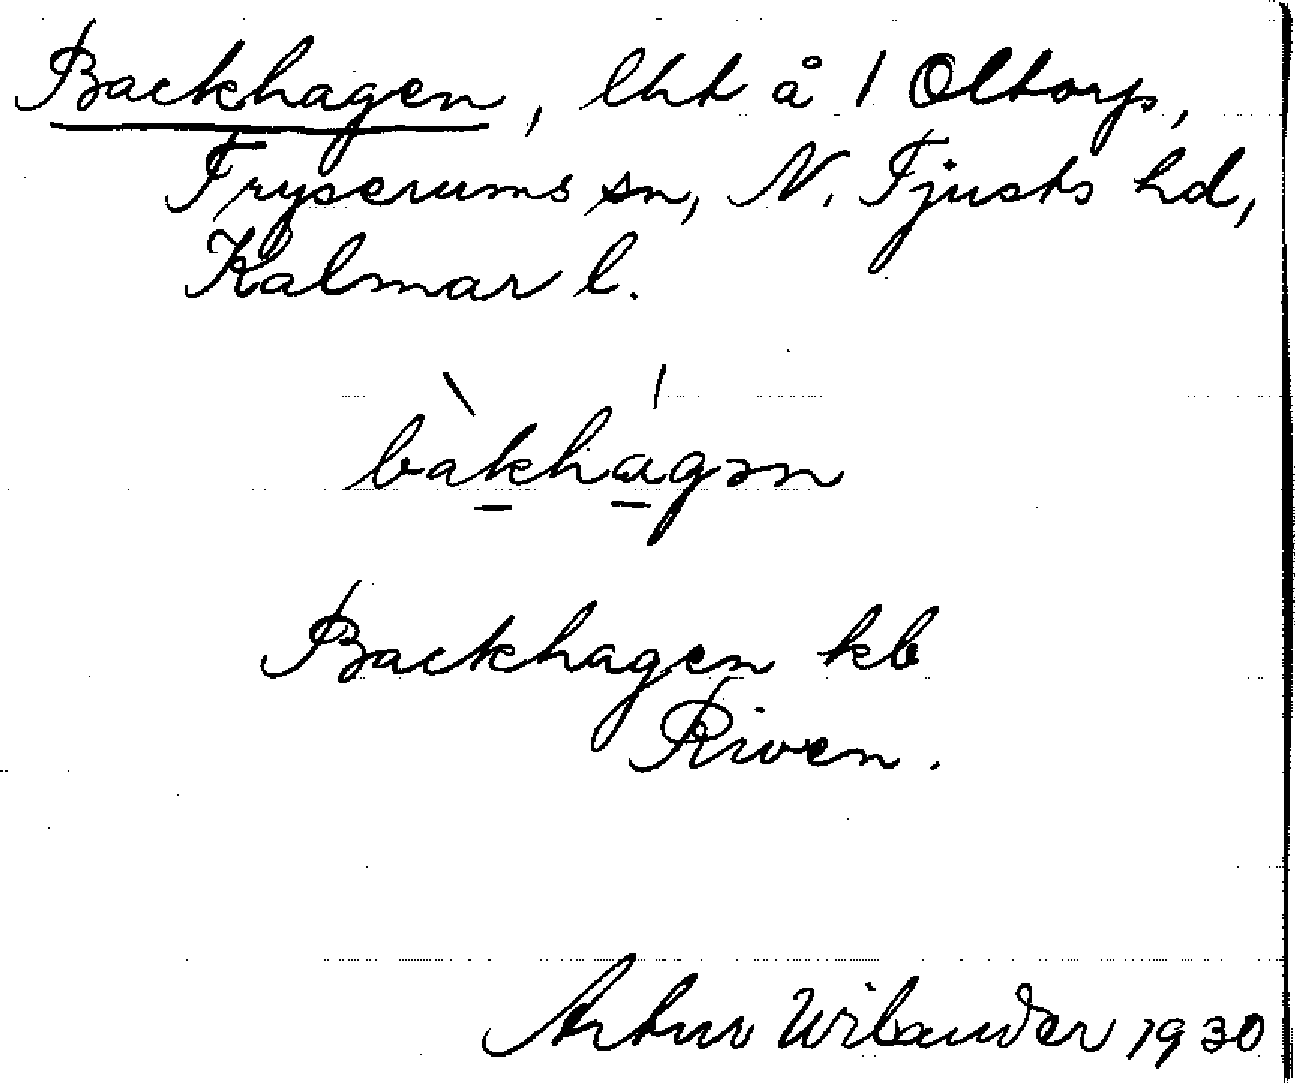 Backhagen, lht å 1 Oltorp,
Tryserums sn, N. Tjusts hd,
Kalmar l.
bàkhágən
Backhagen kb
Riven.
Artur Wilander 1930